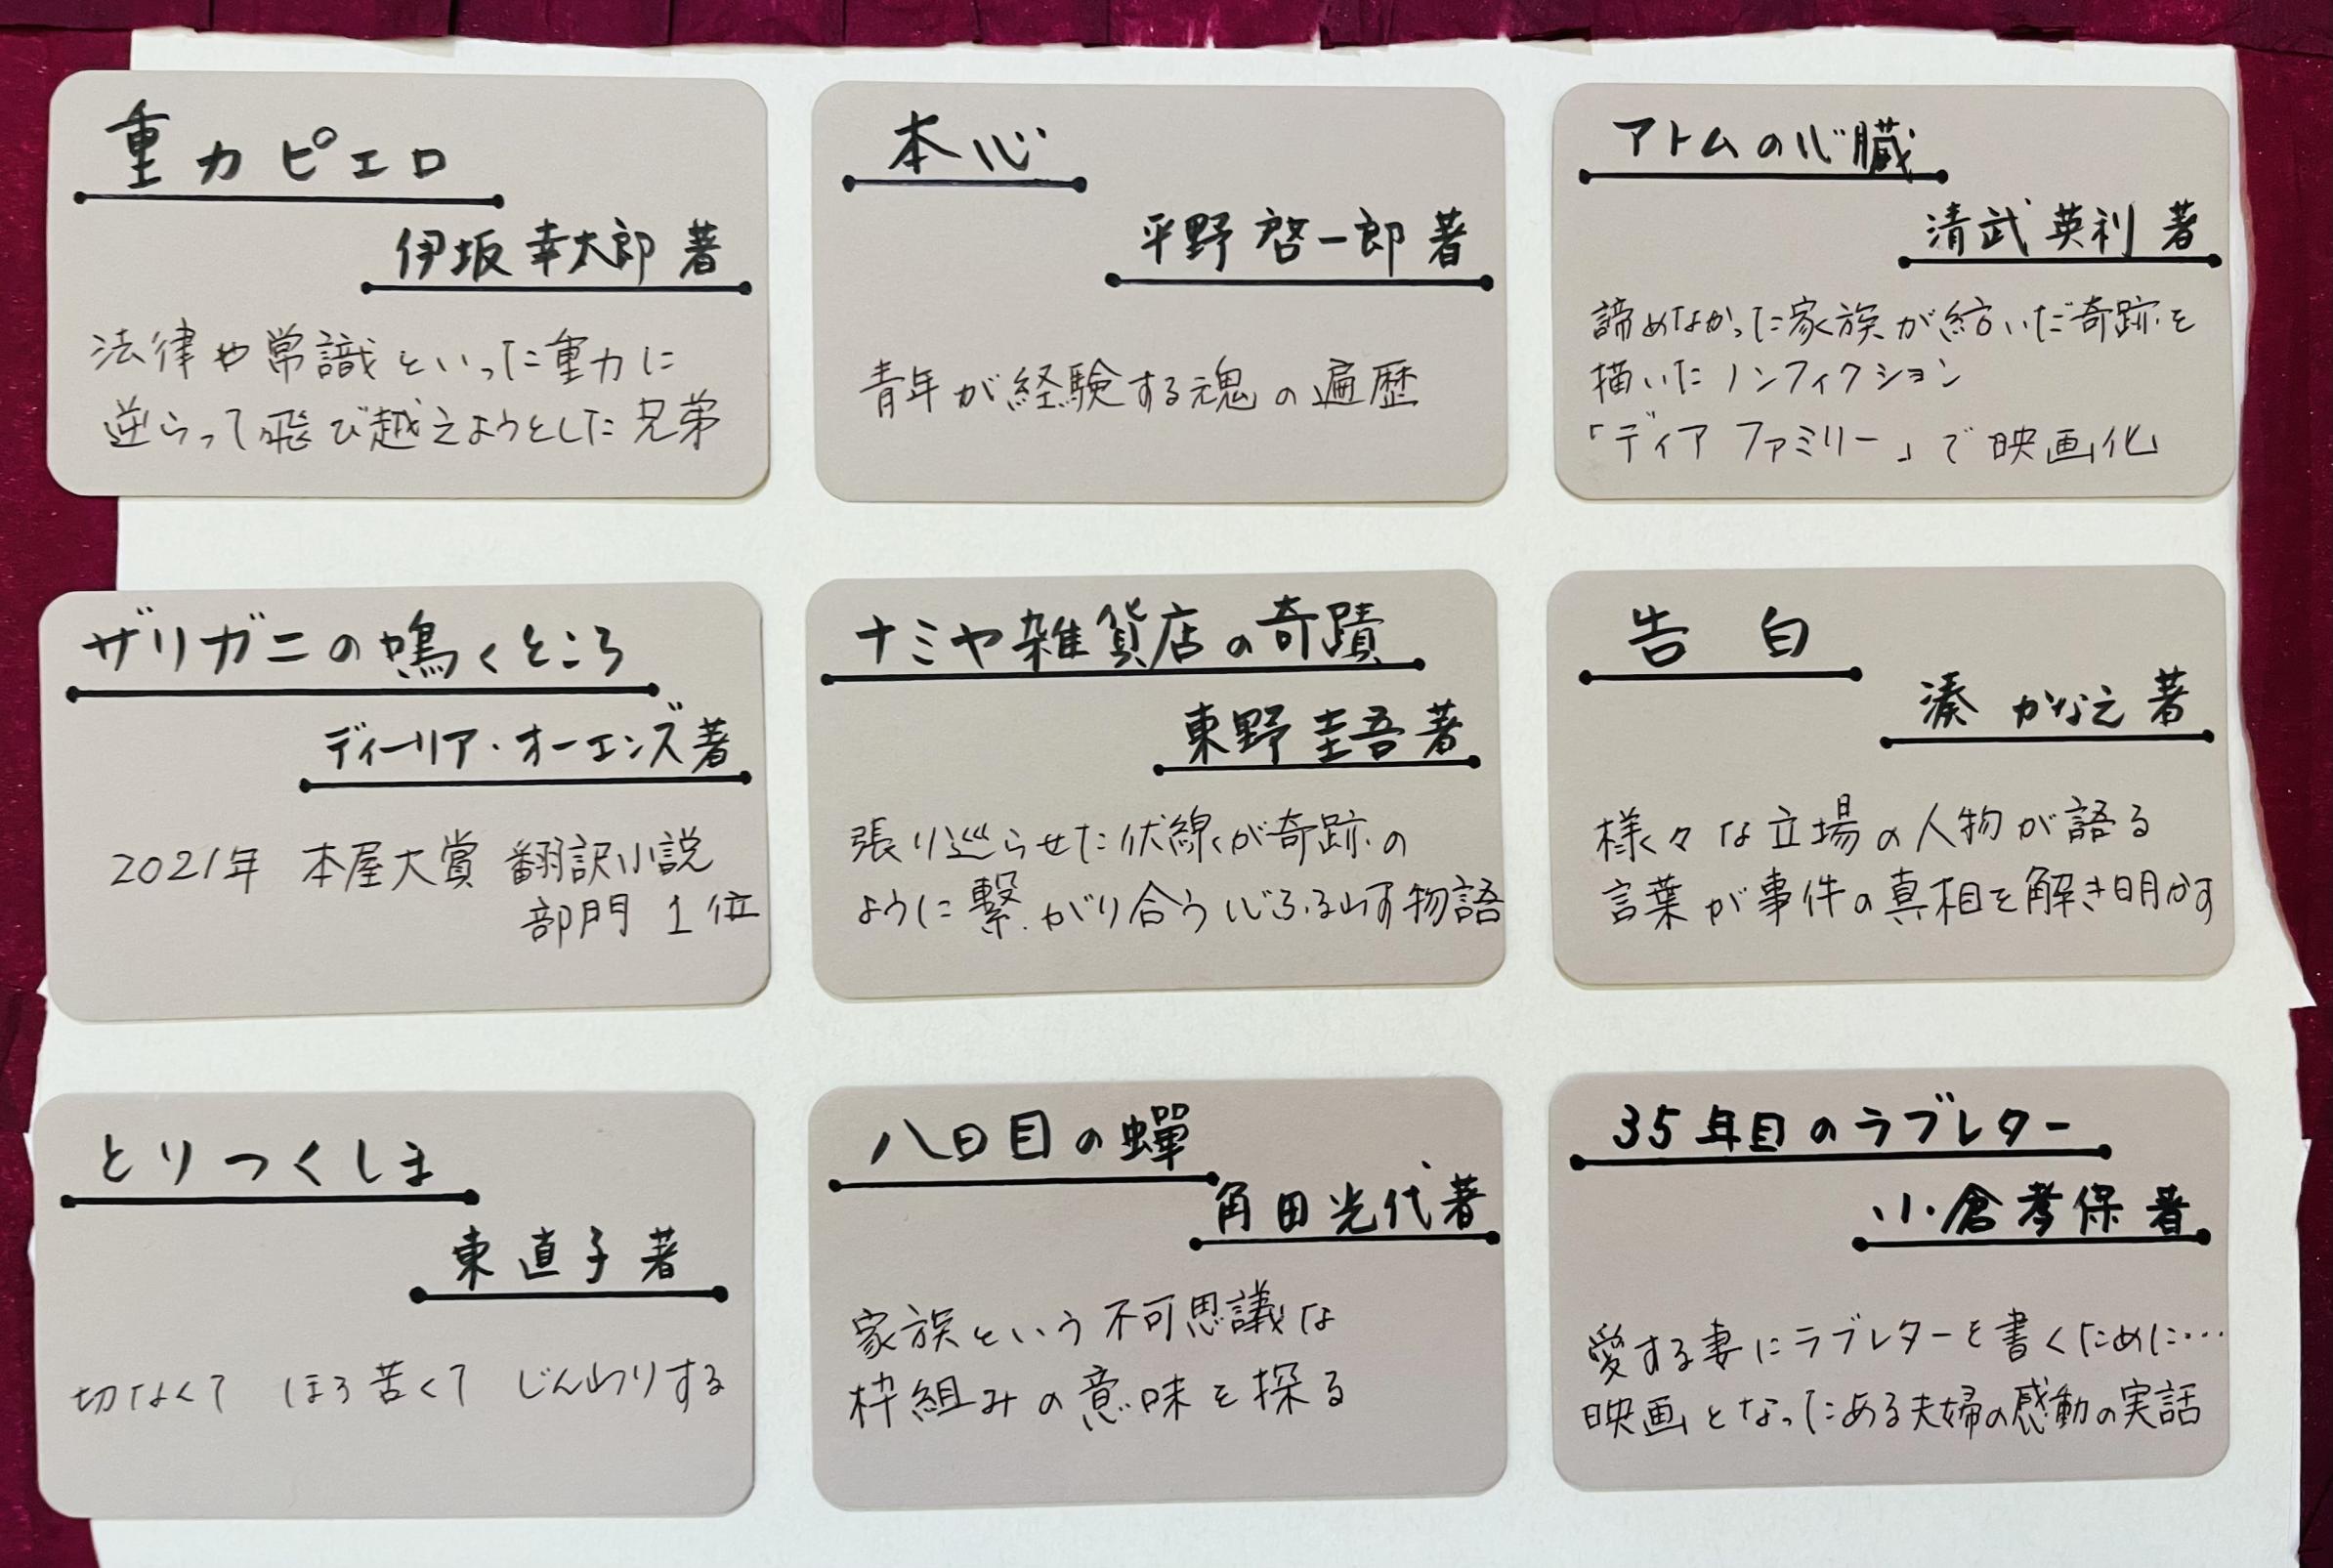 重力ピエロ
伊坂幸太郎 著
法律や常識といった重力に
逆らって飛び越えようとした兄弟
本心
平野啓一郎 著
青年が経験する魂の遍歴
アトムの心臓
清武英利 著
諦めなかった家族が紡いだ奇跡を
描いたノンフィクション
「ディア ファミリー」で映画化
ザリガニの鳴くところ
ディーリア・オーエンズ著
2021年 本屋大賞 翻訳小説
部門 1位
ナミヤ雑貨店の奇蹟
東野圭吾 著
張り巡らせた伏線が奇跡の
ように繋がり合う心ふるわす物語
告白
湊 かなえ 著
様々な立場の人物が語る
言葉が事件の真相を解き明かす
とりつくしま
東 直子 著
切なくて ほろ苦くて じんわりする
八日目の蟬
角田光代 著
家族という不可思議な
枠組みの意味を探る
35年目のラブレター
小倉孝保 著
愛する妻にラブレターを書くために…
映画となったある夫婦の感動の実話